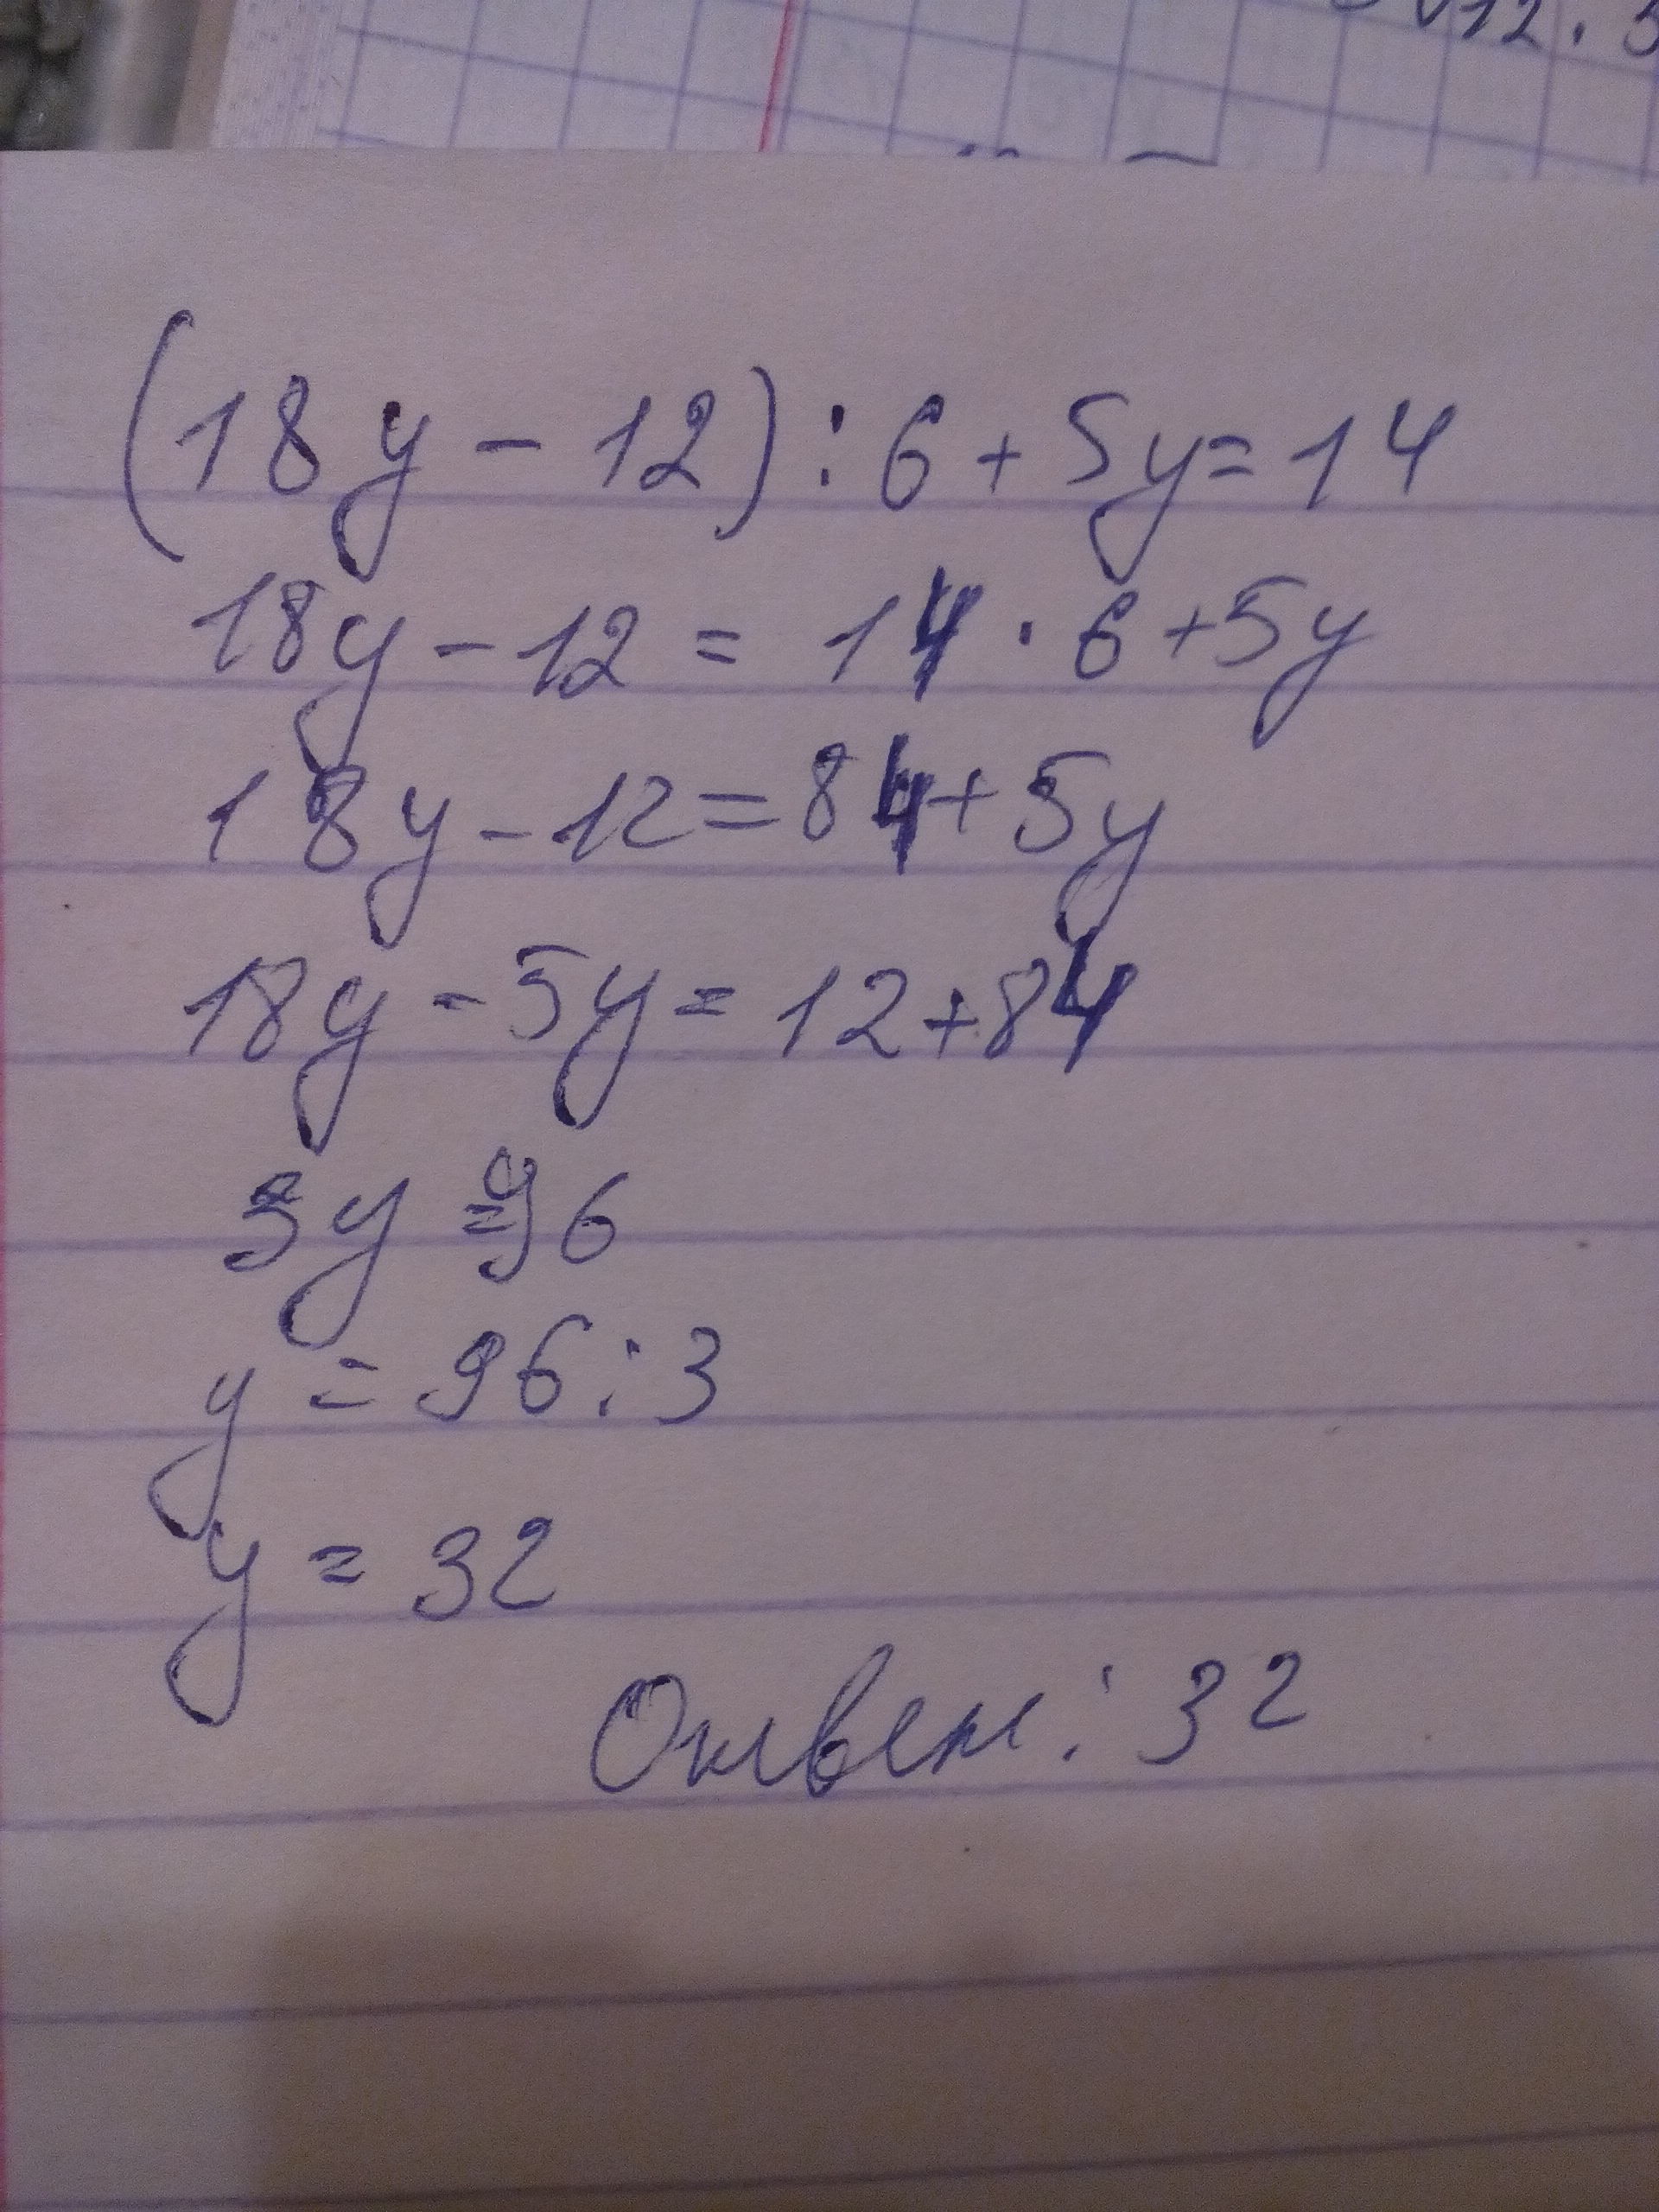 12.
(18y - 12) : 6 + 5y = 14
18y - 12 = 14 · 6 + 5y
18y - 12 = 84 + 5y
18y - 5y = 12 + 84
3y = 96
y = 96 : 3
y = 32
Ответ: 32